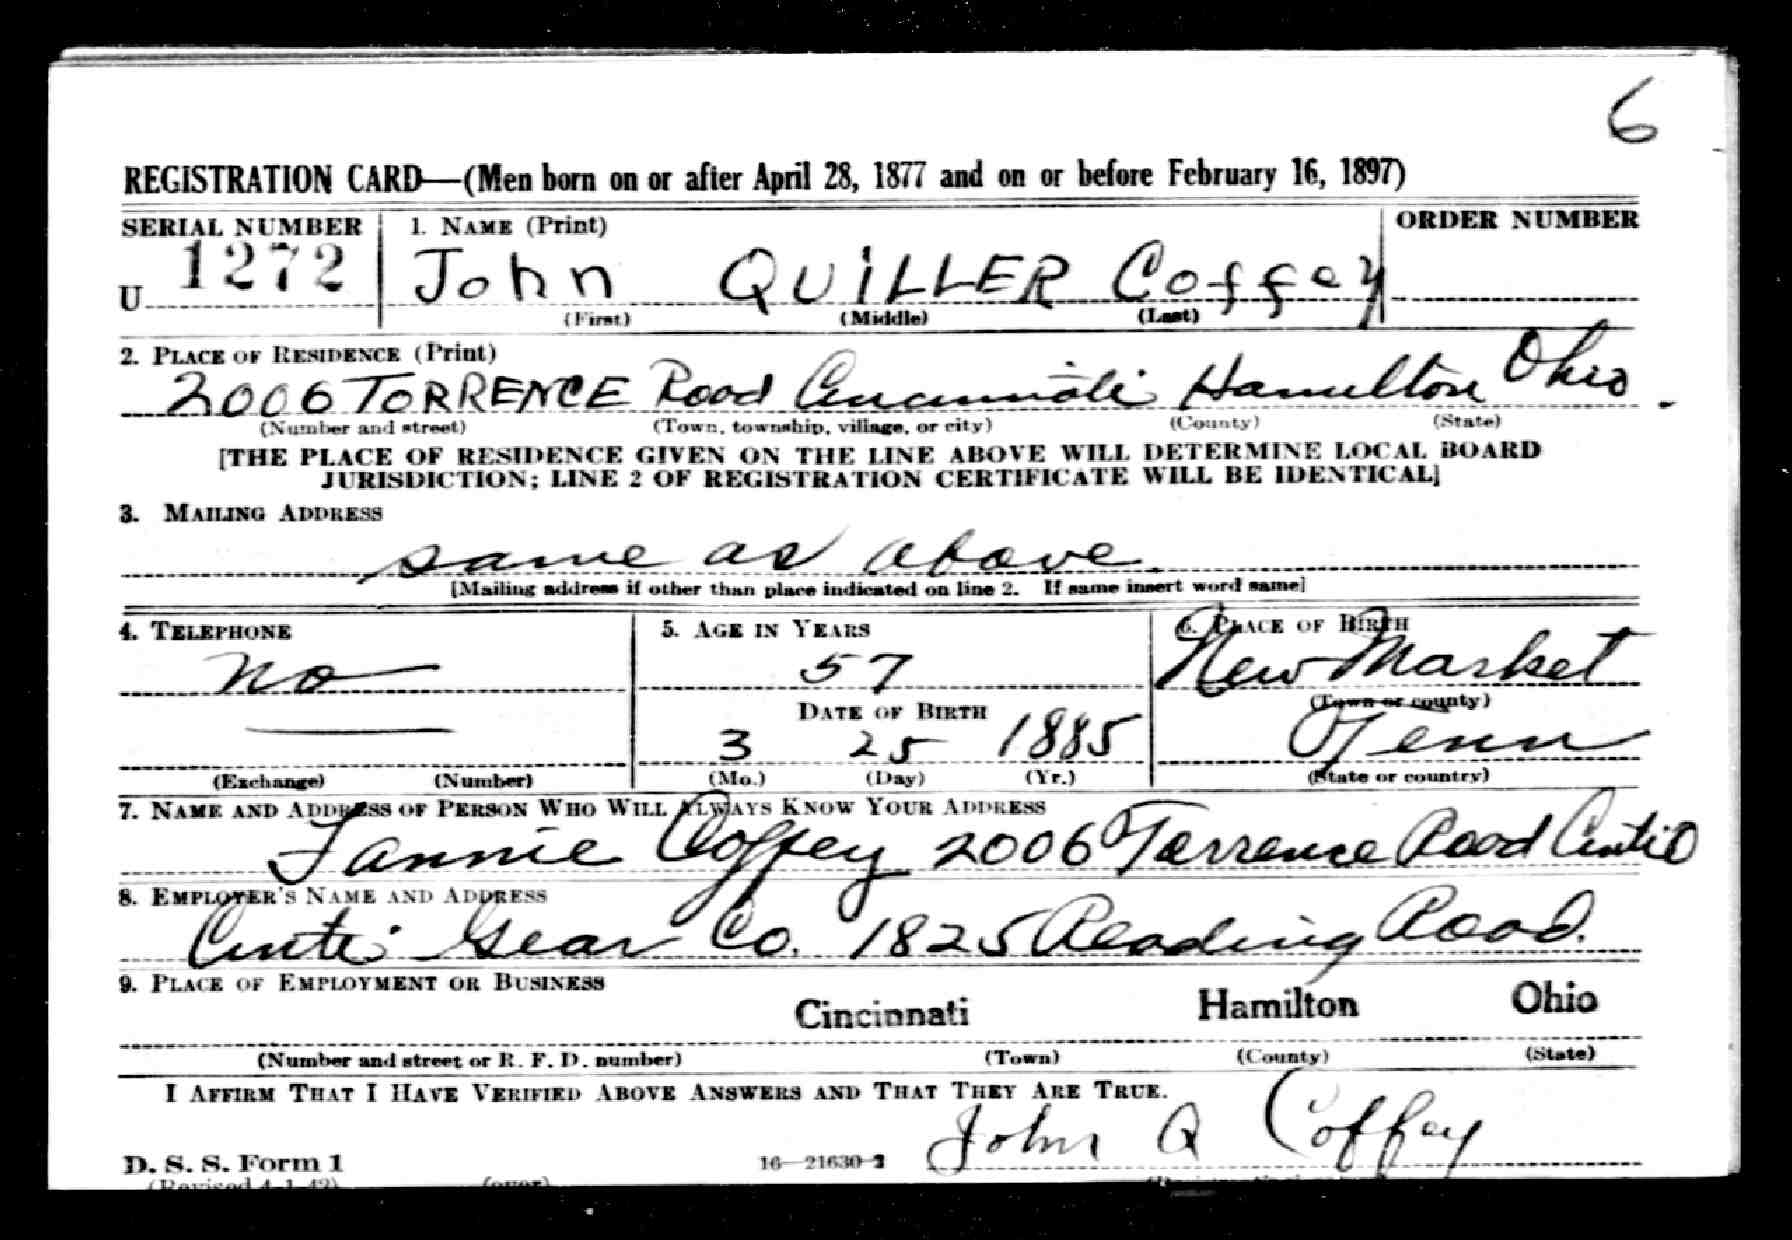 6
REGISTRATION CARD—(Men born on or after April 28, 1877 and on or before February 16, 1897)
SERIAL NUMBER 1. NAME (Print) ORDER NUMBER
U 1272 John QUILLER Coffey
(First) (Middle) (Last)
2. PLACE OF RESIDENCE (Print)
2006 TORRENCE Road Cincinnati Hamilton Ohio.
(Number and street) (Town, township, village, or city) (County) (State)
[THE PLACE OF RESIDENCE GIVEN ON THE LINE ABOVE WILL DETERMINE LOCAL BOARD
JURISDICTION; LINE 2 OF REGISTRATION CERTIFICATE WILL BE IDENTICAL]
3. MAILING ADDRESS
same as above
[Mailing address if other than place indicated on line 2. If same insert word same]
4. TELEPHONE 5. AGE IN YEARS 6. PLACE OF BIRTH
no 57 New Market
(Town or county)
DATE OF BIRTH
3 25 1885 Tenn
(Exchange) (Number) (Mo.) (Day) (Yr.) (State or country)
7. NAME AND ADDRESS OF PERSON WHO WILL ALWAYS KNOW YOUR ADDRESS
Fannie Coffey 2006 Torrence Road Cinti O
8. EMPLOYER'S NAME AND ADDRESS
Cinti Gear Co. 1825 Reading Road.
9. PLACE OF EMPLOYMENT OR BUSINESS
Cincinnati Hamilton Ohio
(Number and street or R. F. D. number) (Town) (County) (State)
I AFFIRM THAT I HAVE VERIFIED ABOVE ANSWERS AND THAT THEY ARE TRUE.
John Q Coffey
D. S. S. Form 1 16—21630-2
(Revised 4-1-42) (over)